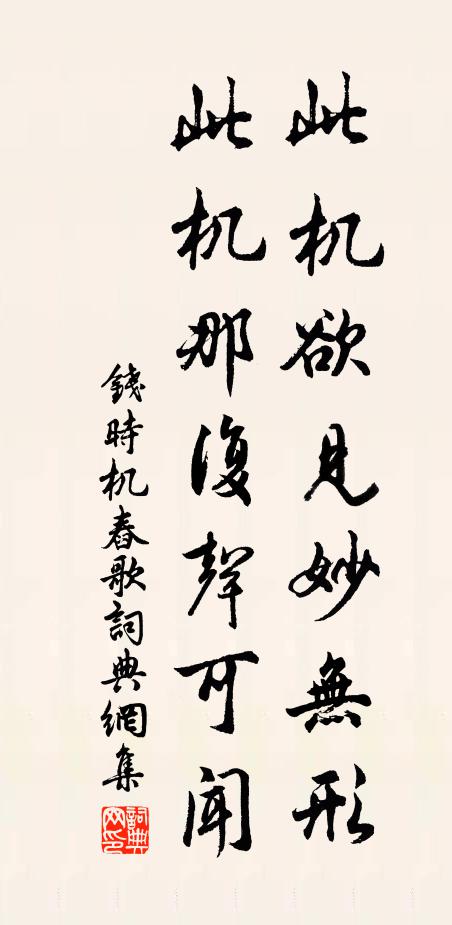 此机欲見妙無形
此机那復聲可聞
錢時机舂歌詞典網集
詞典网印